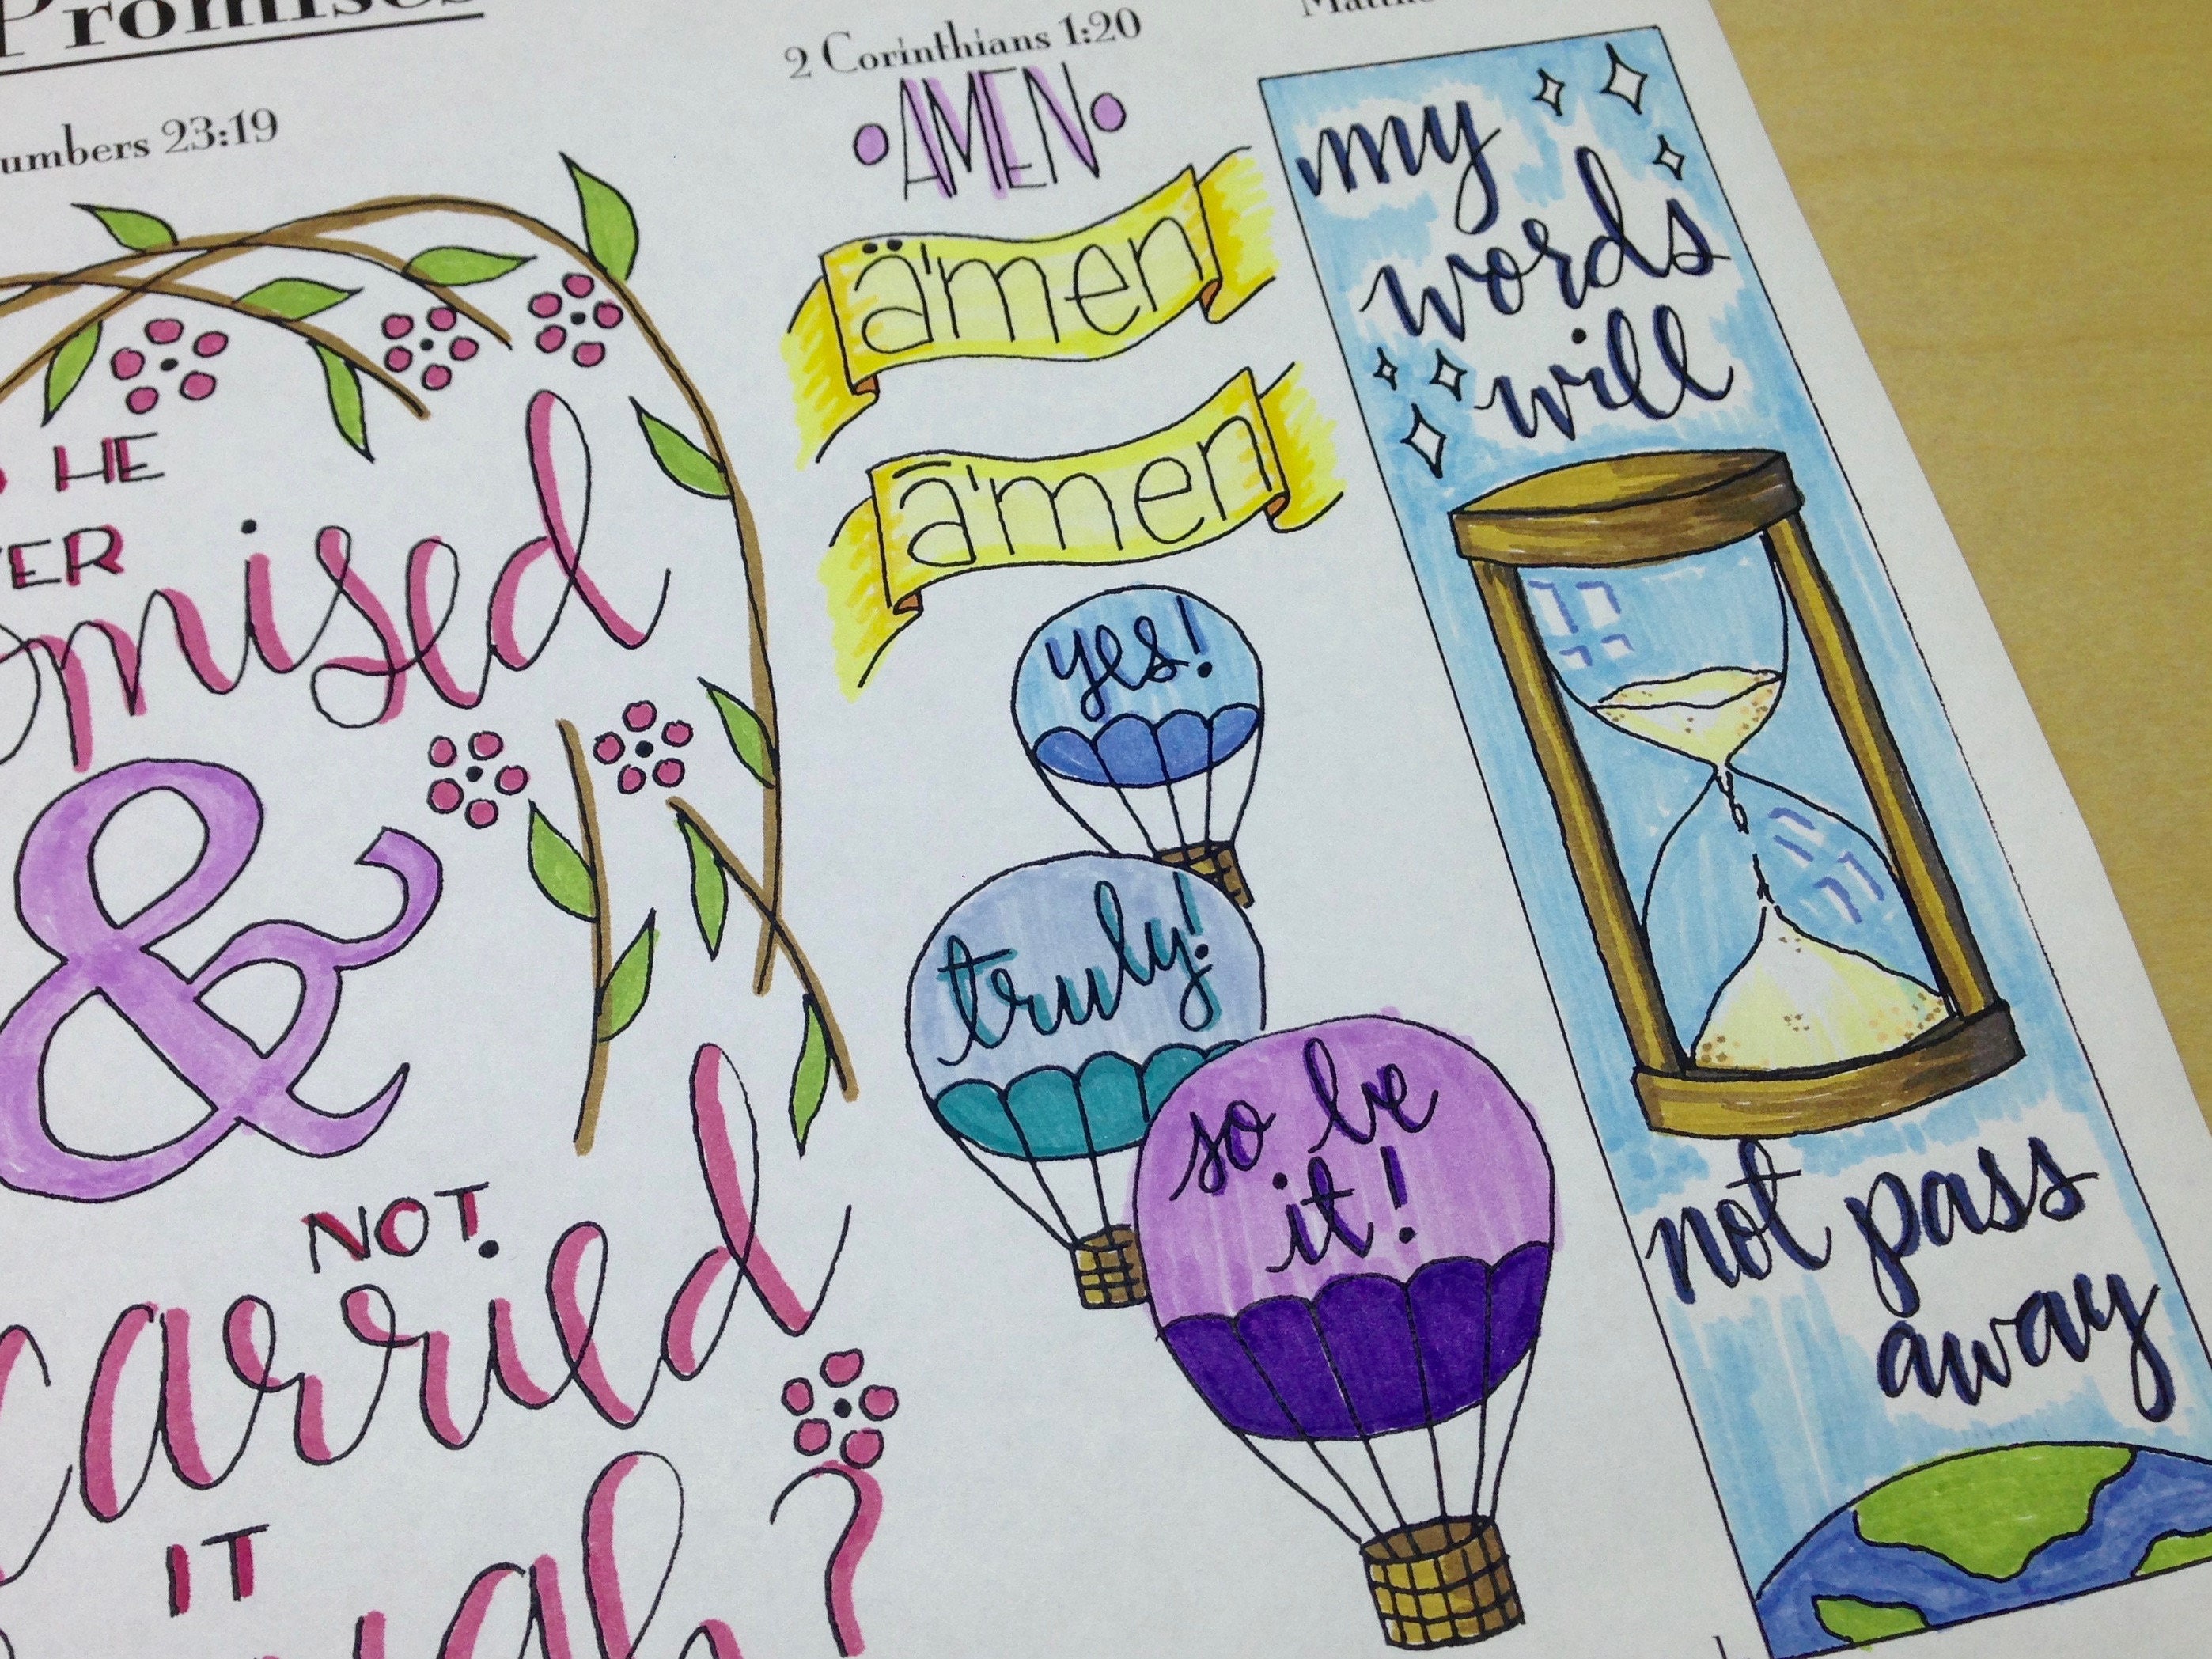 Promises
umbers 23:19
HE
ER
mised
&
NOT
carried
IT
?
2 Corinthians 1:20
AMEN
ä'men
ā'men
yes!
truly!
so be
it!
my
words
will
not pass
away